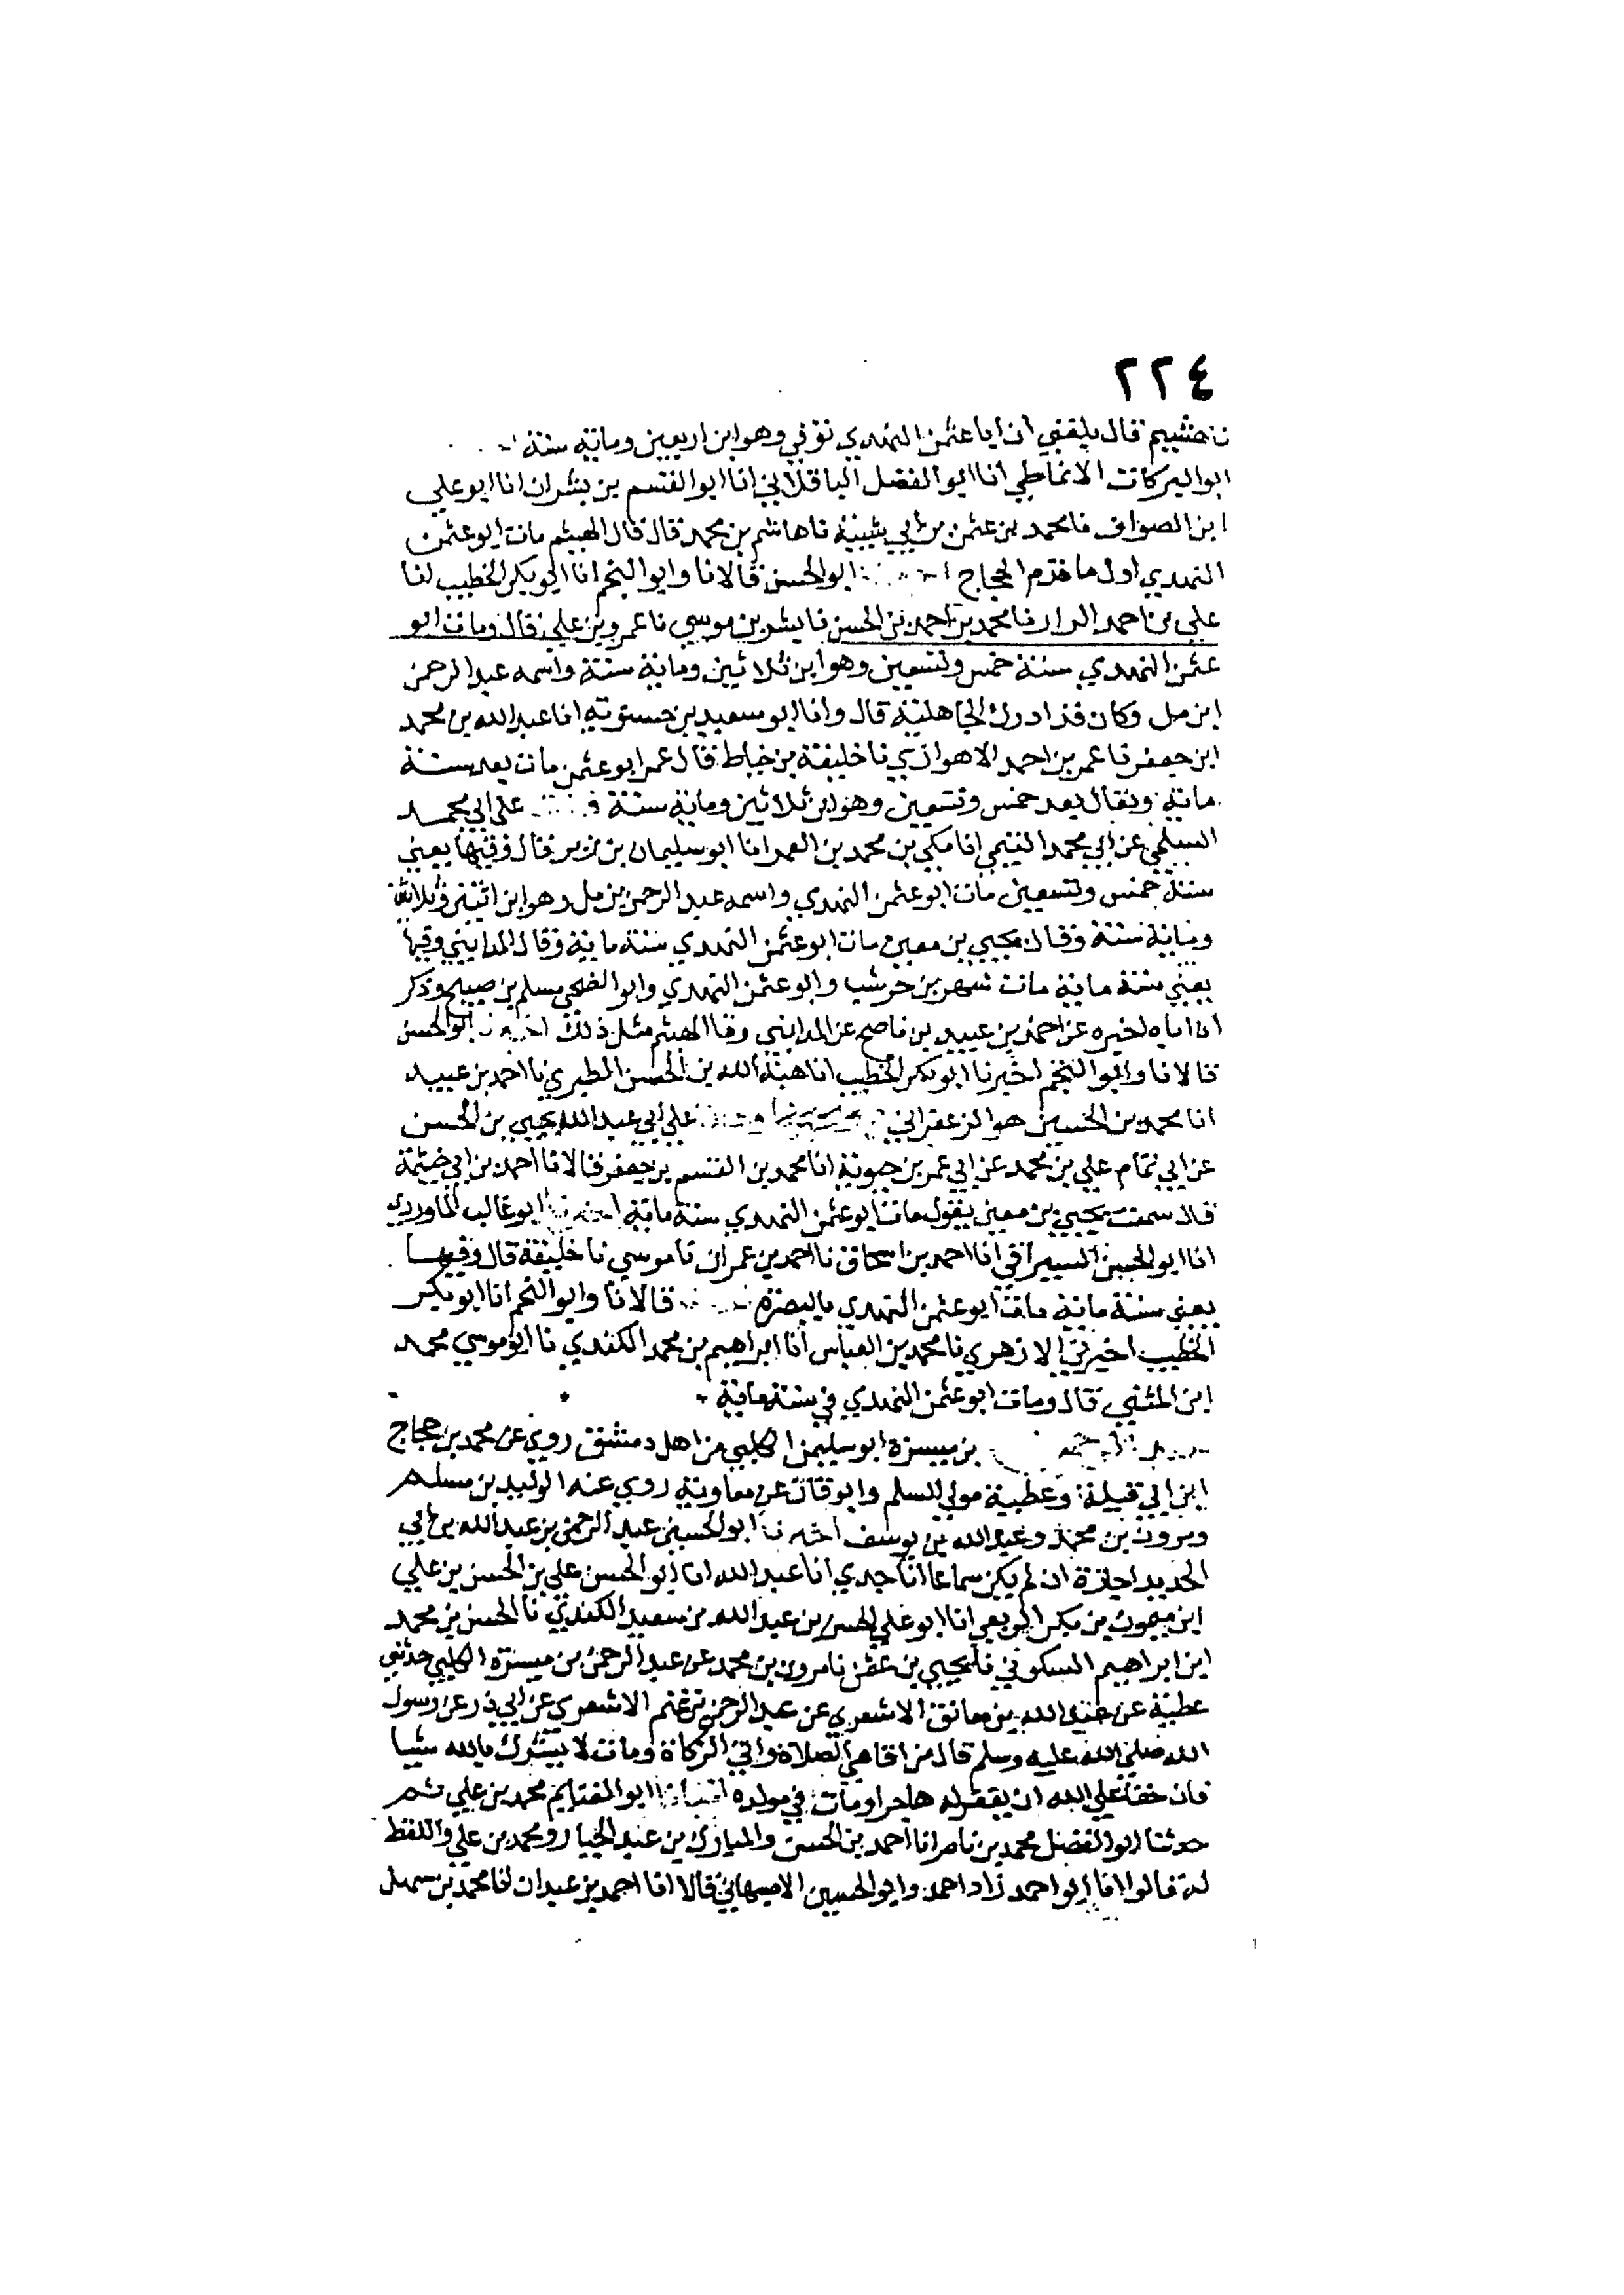 ٢٢٤
نا هشيم قال بلغني ان ابا عثمن النهدي توفي وهو ابن اربعين ومائة سنة
ابو البركات الانماطي انا ابو الفضل الباقلاني انا ابو القسم بن بشران انا ابو علي
ابن الصواف نا محمد بن عثمن بن ابي شيبة نا هاشم بن محمد قال قال الهيثم مات ابو عثمن
النهدي اول ما قدم الحجاج ابو الحسن قالا نا وابو النجم انا ابو بكر الخطيب انا
علي بن احمد الرزاز نا محمد بن احمد بن الحسن نا بشر بن موسي نا عمرو بن علي قال ومات ابو
عثمن النهدي سنة خمس وتسعين وهو ابن ثلاثين ومائة سنة واسمه عبد الرحمن
ابن مل وكان قد ادرك الجاهلية قال وانا ابو سعيد بن حسنويه انا عبد الله بن محمد
ابن جعفر نا عمر بن احمد الاهوازي نا خليفة بن خياط قال عمر ابو عثمن مات بعد سنة
مائة ويقال بعد خمس وتسعين وهو ابن ثلاثين ومائة سنة علي ابي محمد
السلمي عن ابي محمد التميمي انا مكي بن محمد بن الغمر انا ابو سليمان بن زبر قال وفيها يعني
سنة خمس وتسعين مات ابو عثمن النهدي واسمه عبد الرحمن بن مل وهو ابن اثنين وثلاثين
ومائة سنة وقال يحيي بن معين مات ابو عثمن النهدي سنة مائة وقال المدايني وفيها
يعني سنة مائة مات شهر بن حوشب وابو عثمن النهدي وابو الضحي مسلم بن صبيح وذكر
ان اباه اخبره عن احمد بن عبيد بن ناصح عن المدايني وقال الهيثم مثل ذلك اخبرنا ابو الحسن
قالا نا وابو النجم اخبرنا ابو بكر الخطيب انا هبة الله بن الحسن الطبري نا احمد بن عبيد
انا محمد بن الحسين هو الزعفراني علي ابي عبد الله يحيي بن الحسن
عن ابي تمام علي بن محمد عن ابي عمر بن حيوية انا محمد بن القسم بن جعفر قالا نا احمد بن ابي خيثمة
قال سمعت يحيي بن معين يقول مات ابو عثمن النهدي سنة مائة اخبرنا ابو غالب الماوردي
انا ابو الحسن السيرافي انا احمد بن اسحاق نا احمد بن عمران نا موسي نا خليفة قال وفيها
يعني سنة مائة مات ابو عثمن النهدي بالبصرة قالا نا وابو النجم انا ابو بكر
الخطيب اخبرني الازهري نا محمد بن العباس انا ابراهيم بن محمد الكندي نا ابو موسي محمد
ابن المثني قال ومات ابو عثمن النهدي في سنة مائة
بن ميسرة ابو سليمن الكلبي من اهل دمشق روي عن محمد بن حجاج
ابن ابي قتيلة وعطية مولي السلم وابو قنان عن معاوية روي عنه الوليد بن مسلم
ومرون بن محمد وعبد الله بن يوسف اخبرنا ابو الحسين عبد الرحمن بن عبد الله بن ابي
الحديد اجازة ان لم يكن سماعا انا جدي انا عبد الله انا ابو الحسن علي بن الحسن بن علي
ابن ميمون بن بكر الربعي انا ابو علي الحسن بن عبد الله بن سعيد الكندي نا الحسن بن محمد
ابن ابراهيم السكوني نا يحيي بن عثمن نا مرون بن محمد عن عبد الرحمن بن ميسرة الكلبي حدثني
عطية عن عبد الله بن معانق الاشعري عن عبد الرحمن بن غنم الاشعري عن ابي ذر عن رسول
الله صلي الله عليه وسلم قال من اقام الصلاة واتي الزكاة ومات لا يشرك بالله شيا
فان حقا علي الله ان يغفر له هاجر او مات في مولده انبانا ابو الغنايم محمد بن علي ثم
حدثنا ابو الفضل محمد بن ناصر انا احمد بن الحسن والمبارك بن عبد الجبار ومحمد بن علي واللفظ
له قالوا انا ابو احمد زاد احمد وابو الحسين الاصبهاني قالا انا احمد بن عبدان انا محمد بن سهل